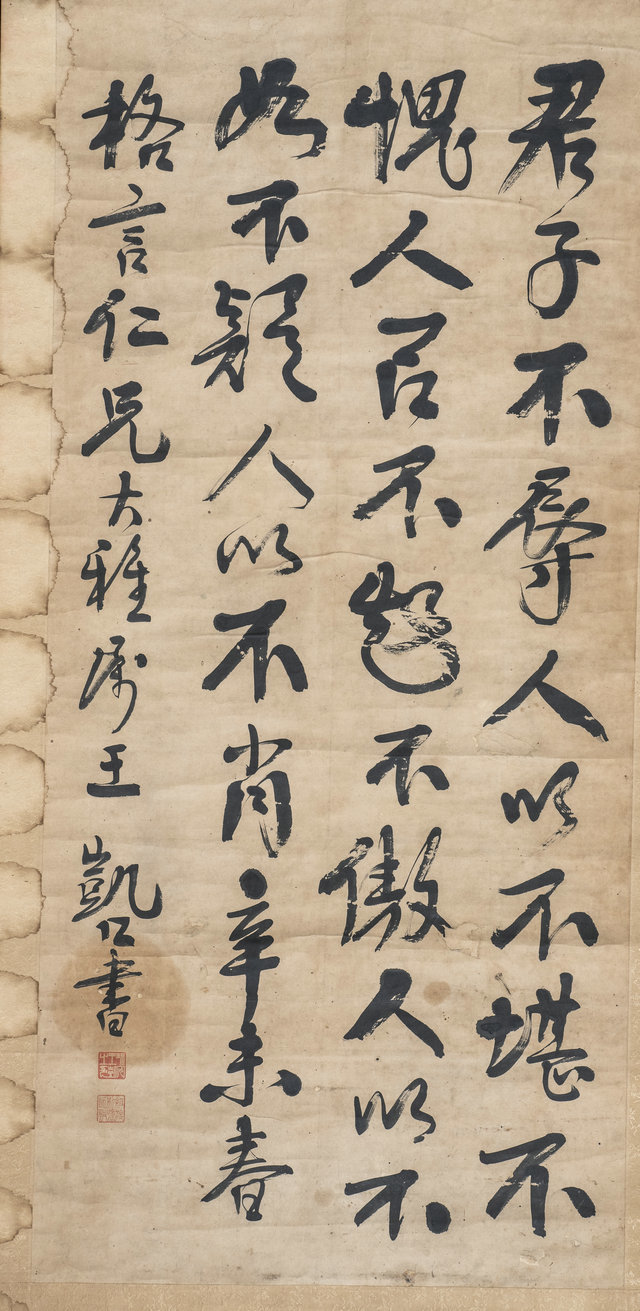 君子不辱人以不堪不
愧人㠯不不傲人以不
如不疑人以不肖辛未春
格言仁兄大雅属王凱書